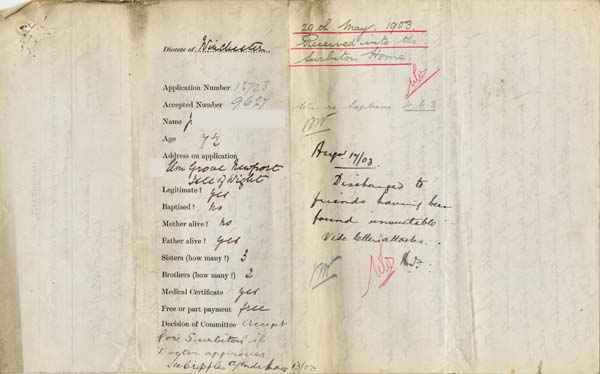 Diocese of Winchester
Application Number 12723
Accepted Number 9627
Name J.
Age 7½
Address on application
Elm Grove Newport
Isle of Wight
Legitimate? yes
Baptised? No
Mother alive? No
Father alive? Yes
Sisters (how many?) 3
Brothers (how many?) 2
Medical Certificate yes
Free or part payment free
Decision of Committee Accept
for Surbiton if
Doctor approves
13/03
29th May, 1903.
Received into the
Surbiton Home.
baptism
Augst 17/03.
Discharged to
friends having been
found unsuitable.
Vide letter attached.